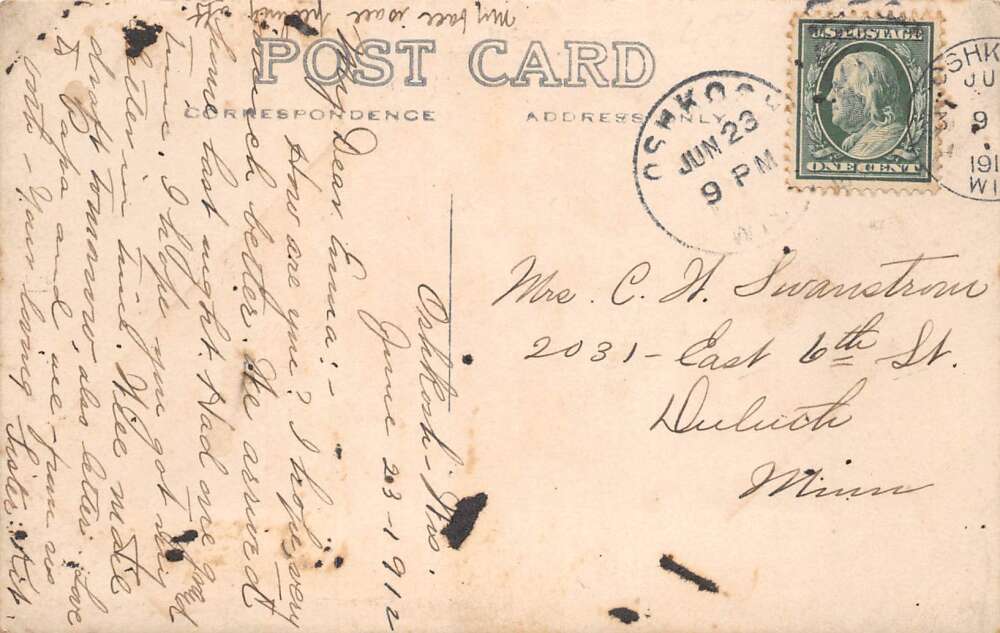 POST CARD
CORRESPONDENCE
ADDRESS ONLY
OSHKOSH
JUN 23
9 PM
WIS
U.S. POSTAGE
ONE CENT
OSHKO
JU
9
191
WI
Mrs. C. H. Swanstrom
2031 - East 6th St.
Duluth
Minn
Oshkosh - Wis.
June 23 - 1912
My Dear Emma: -
How are you? I hope very
much better. We arrived
home last night. Had one good
time. I hope you got my
letter in time. Will mail
draft tomorrow, also letter. Love
to Papa and, all - from us
- Your loving Sister
My face is all off.